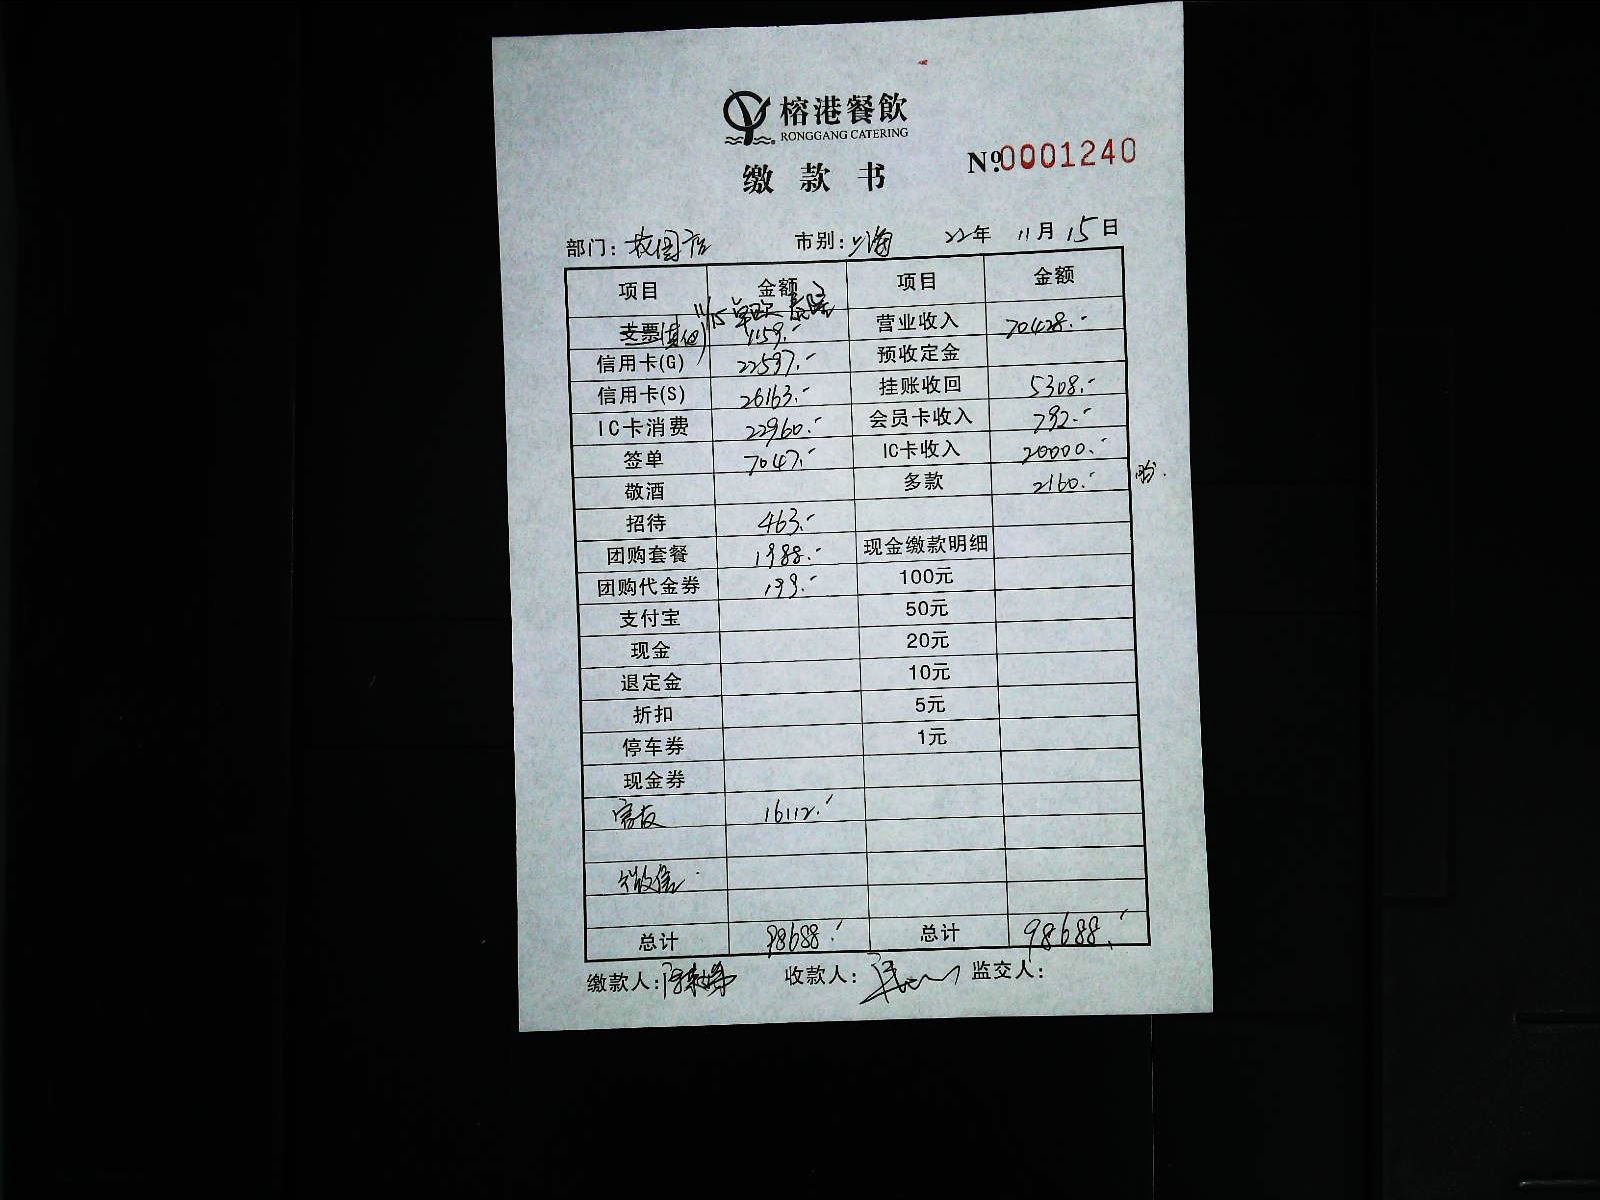 榕港餐飲
RONGGANG CATERING
缴款书
Nº.0001240
部门: 市别: 上海 22年 11月 15日
项目 金额 项目 金额
11/15
支票(其他) 1159.- 营业收入 70428.-
信用卡(G) 22597.- 预收定金
信用卡(S) 26163.- 挂账收回 5308.-
IC卡消费 22960.- 会员卡收入 792.-
签单 7047.- IC卡收入 20000.-
敬酒 多款 2160.-
招待 463.-
团购套餐 1988.- 现金缴款明细
团购代金券 199.- 100元
支付宝 50元
现金 20元
退定金 10元
折扣 5元
停车券 1元
现金券
16112.-
微信
总计 98688.- 总计 98688.-
缴款人: 收款人: 监交人: